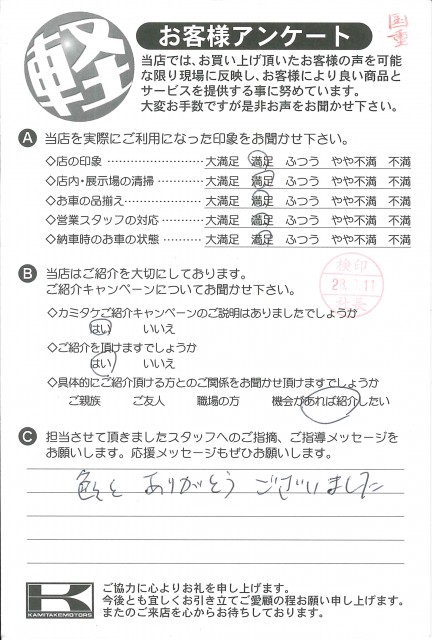 軽
お客様アンケート
国重
当店では、お買い上げ頂いたお客様の声を可能
な限り現場に反映し、お客様により良い商品と
サービスを提供する事に努めています。
大変お手数ですが是非お声をお聞かせ下さい。
A 当店を実際にご利用になった印象をお聞かせ下さい。
◇店の印象 ………………… 大満足 満足 ふつう やや不満 不満
◇店内・展示場の清掃 ………… 大満足 満足 ふつう やや不満 不満
◇お車の品揃え ……………… 大満足 満足 ふつう やや不満 不満
◇営業スタッフの対応 ………… 大満足 満足 ふつう やや不満 不満
◇納車時のお車の状態 ………… 大満足 満足 ふつう やや不満 不満
B 当店はご紹介を大切にしております。
ご紹介キャンペーンについてお聞かせ下さい。
検印
◇カミタケご紹介キャンペーンのご説明はありましたでしょうか
はい いいえ
◇ご紹介を頂けますでしょうか
はい いいえ
◇具体的にご紹介頂ける方とのご関係をお聞かせ頂けますでしょうか
ご親族 ご友人 職場の方 機会があれば紹介したい
C 担当させて頂きましたスタッフへのご指摘、ご指導メッセージを
お願いします。応援メッセージもぜひお願いします。
色々と ありがとう ございました
K
KAMITAKEMOTORS
ご協力に心よりお礼を申し上げます。
今後とも宜しくお引き立てご愛顧の程お願い申し上げます。
またのご来店を心からお待ちしております。